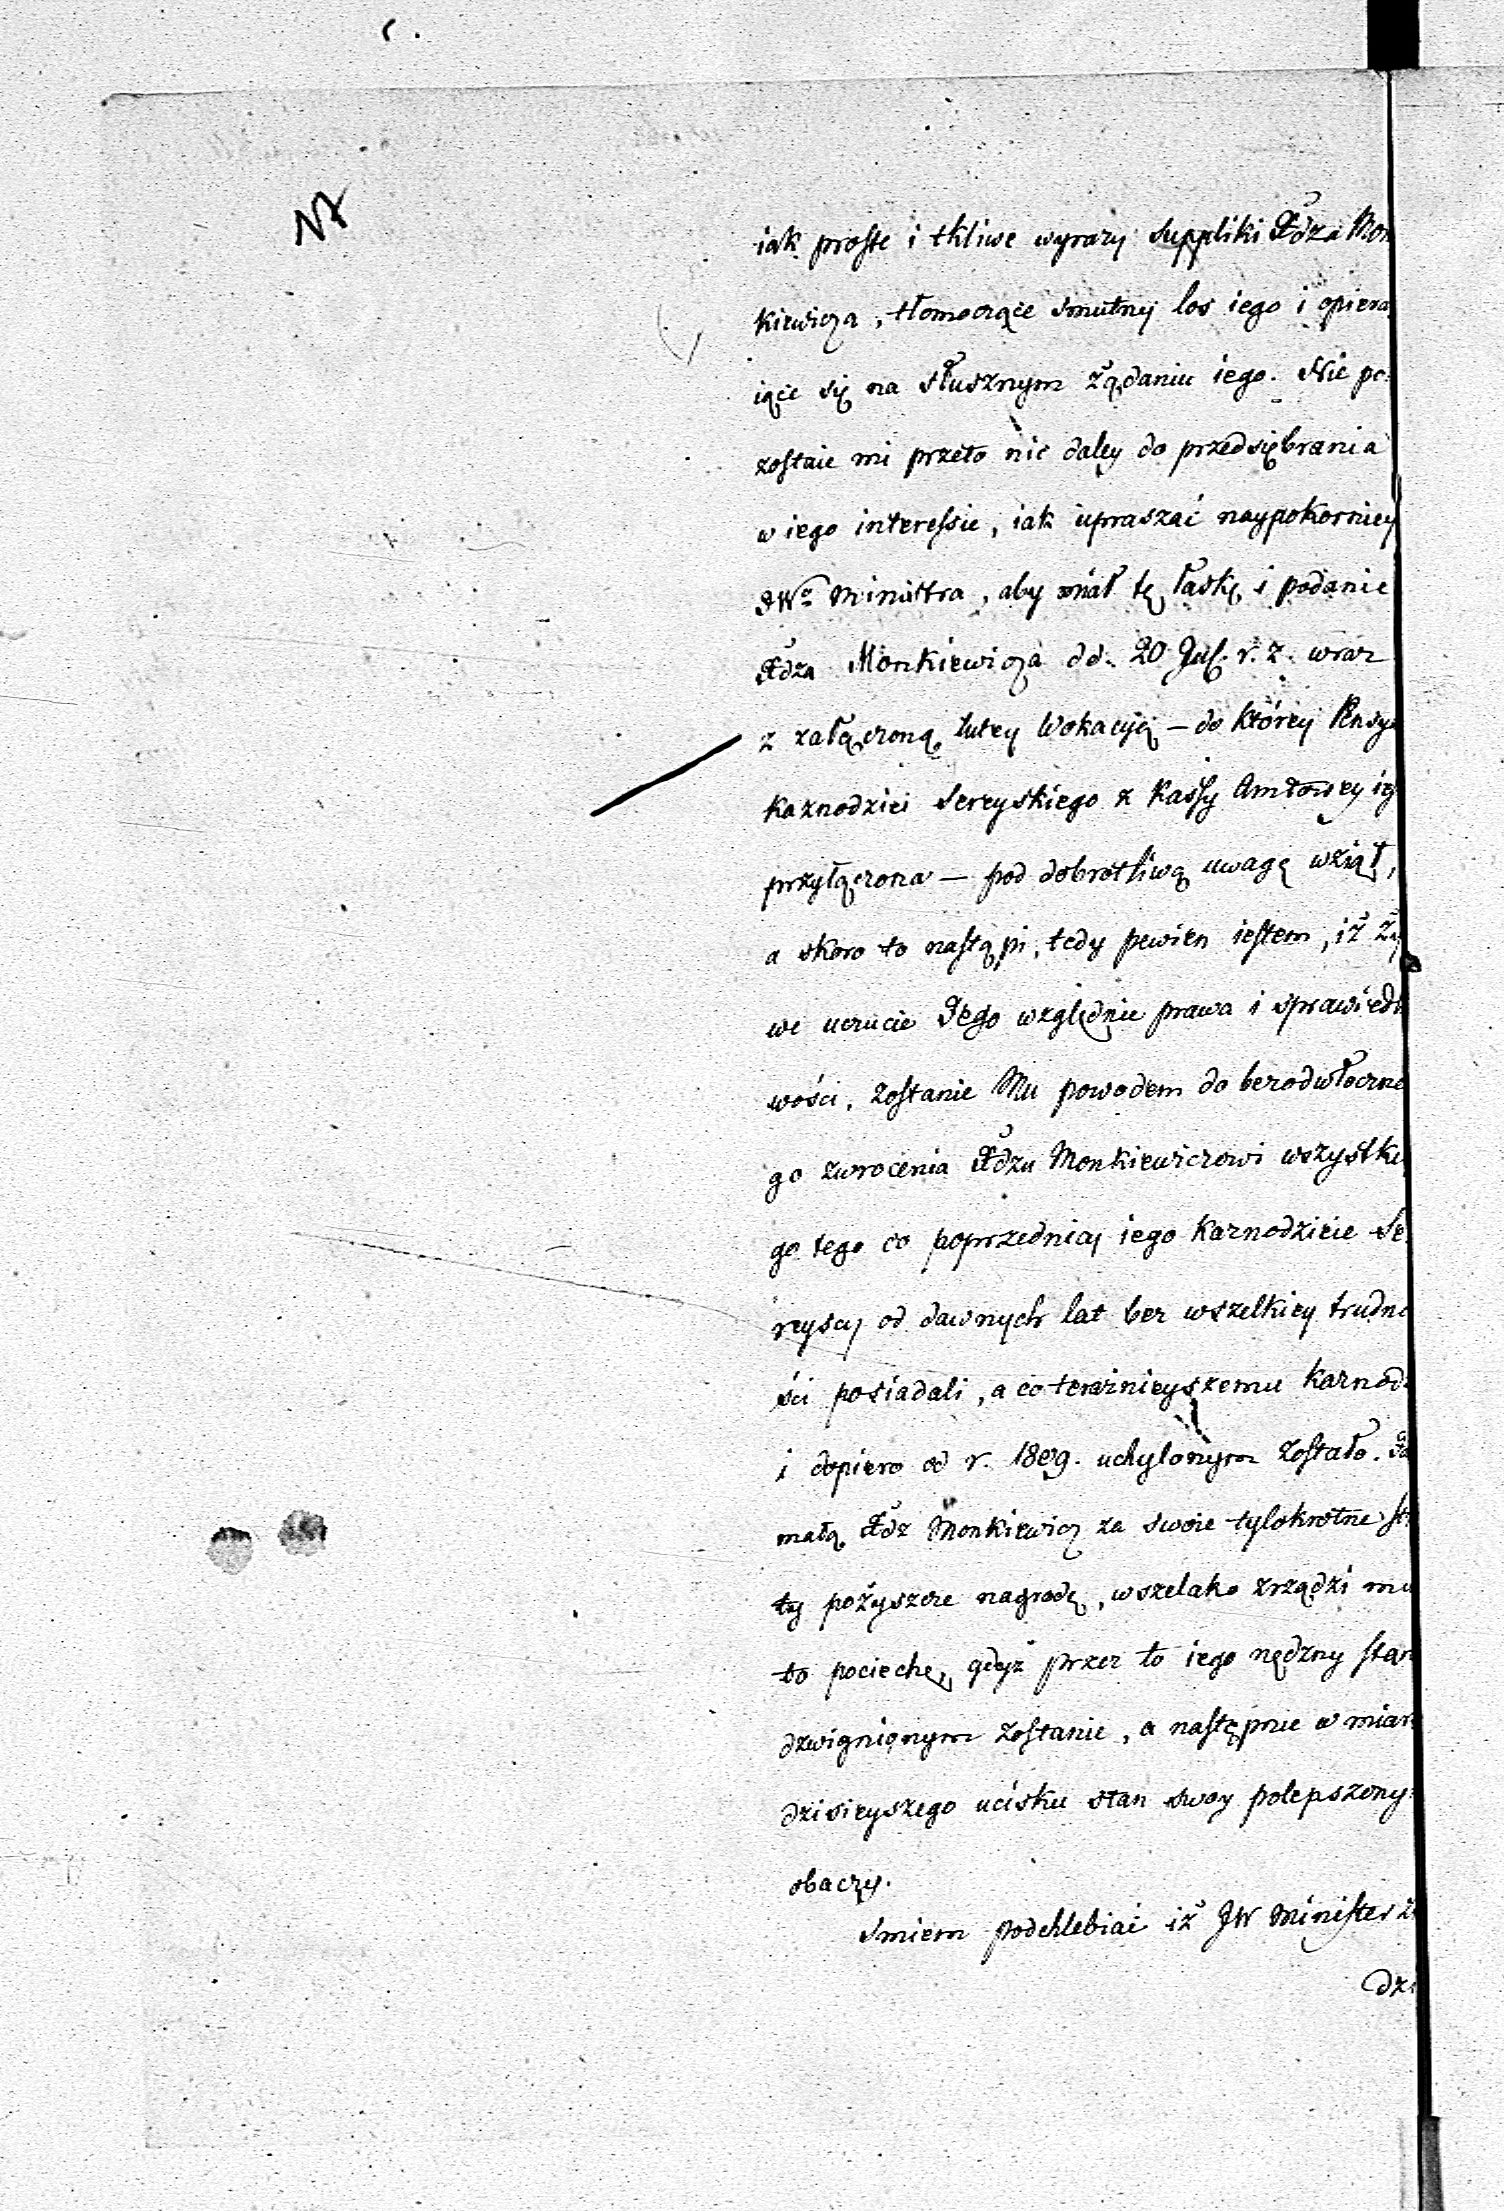 iak proste i tkliwe wyrazy suppliki Xdza Mon
kiewicza, tłomoczące smutny los iego i opiera
iące się na słusznym żądaniu iego. Nie po-
zostaie mi przeto nic daley do przedsiębrania
w iego interessie, iak upraszać naypokorniey
JWo Ministra, aby miał tę łaskę, i podanie
Xdza Monkiewicza dd. 20 Jul. r. z. wraz
z załączoną tutey Wokacyią – do którey Pensya
kaznodziei Sereyskiego z Kassy Amtowey
przyłączona – pod dobrotliwą uwagę wziął,
a skoro to nastąpi, tedy pewien iestem, iż
we uczucie Jego względnie prawa i sprawiedl
wości, zostanie Mu powodem do bezodwłoczne
go zwrocenia Xdzu Monkiewiczowi wszystkie
go tego co poprzednicy iego Kaznodzieie Se-
reyscy od dawnych lat bez wszelkiey trudno
ści posiadali, a co teraznieyszemu Kaznodz
i dopiero od r. 1809. uchylonym zostało.
małą Xdz Monkiewicz za swoie tylokrotne st
ty pozyszcze nagrodę, wszelako zrządzi mu
to pociechę, gdyż przez to iego nędzny stan
dzwignionym zostanie, a następnie w miarę
dzisieyszego ucisku stan swoy polepszony
obaczy.
Smiem podchlebiać iż JW Minister
dzi